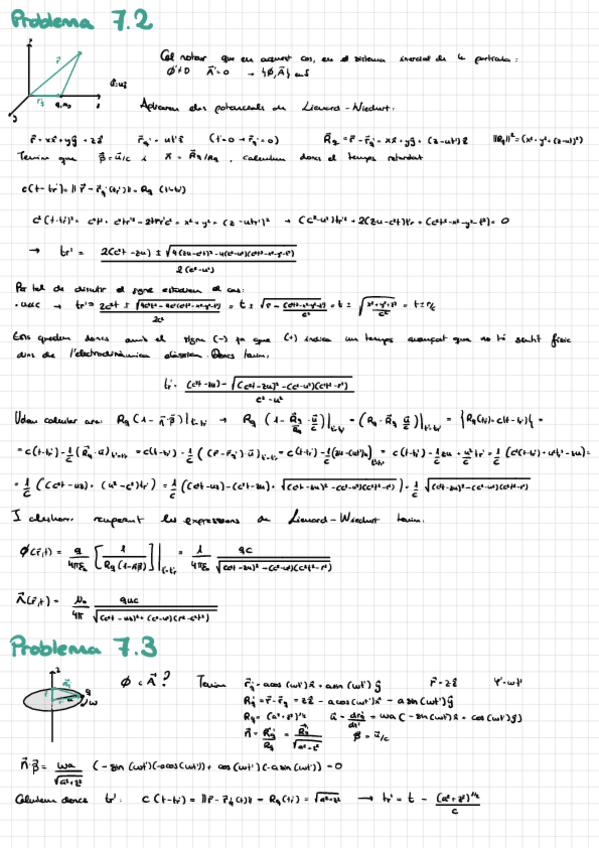 Problema 7.2
Cal notar que en aquest cas, en el sistema inercial de la partícula:
φ'≠0 A⃗'=0 → {φ,A⃗}
Aplicarem els potencials de Lienard-Wiechert.
r⃗ = xx̂ + yŷ + zẑ r⃗q' = ut'ẑ (t=0 → r⃗q'=0) R⃗q = r⃗ - r⃗q' = xx̂ + yŷ + (z-ut')ẑ ||Rq||² = (x²+y²+(z-ut')²)
Tenim que β⃗ = u⃗/c i n⃗ = R⃗q/Rq, calculem doncs el temps retardat
c(t-tr') = ||r⃗ - r⃗q'(tr')|| = Rq(tr')
c²(t-tr')² = c²t² + c²tr'² - 2ttr'c² = x²+y²+(z-utr')² → (c²-u²)tr'² + 2(zu-c²t)tr' + (c²t²-x²-y²-z²) = 0
→ tr' = 2(c²t-zu) ± √4(zu-c²t)²-4(c²-u²)(c²t²-x²-y²-z²) / 2(c²-u²)
Per tal de discutir el signe estudiem el cas:
· u≪c → tr' = 2c²t ± √4c⁴t²-4c²(c²t²-x²-y²-z²) / 2c² = t ± √t²-(c²t²-x²-y²-z²)/c² = t ± √x²+y²+z²/c² = t ± r/c
Ens quedem doncs amb el signe (-) ja que (+) indica un temps avançat que no té sentit físic
dins de l'electrodinàmica clàssica. Doncs tenim,
tr' = (c²t-zu) - √(c²t-zu)²-(c²-u²)(c²t²-r²) / c²-u²
Volem calcular ara: Rq(1-n⃗·β⃗)|t'=tr' → Rq(1 - R⃗q/Rq · u⃗/c)|t'=tr' = (Rq - R⃗q u⃗/c)|t'=tr' = {Rq(tr') = c(t-tr')} =
= c(t-tr') - 1/c (R⃗q·u⃗)t'=tr' = c(t-tr') - 1/c ((r⃗-r⃗q')·u⃗)t'=tr' = c(t-tr') - 1/c [zu-(u²t')]t'=tr' = c(t-tr') - 1/c zu + u²/c tr' = 1/c (c²(t-tr') + u²tr' - zu) =
= 1/c ((c²t-uz) + (u²-c²)tr') = 1/c ((c²t-uz) - (c²t-zu) + √(c²t-zu)²-(c²-u²)(c²t²-r²)) = 1/c √(c²t-zu)²-(c²-u²)(c²t²-r²)
I aleshores recuperant les expressions de Lienard-Wiechert tenim.
φ(r⃗,t) = q/4πε₀ [1/Rq(1-n⃗β⃗)]|t'=tr' = 1/4πε₀ qc/√(c²t-zu)²-(c²-u²)(c²t²-r²)
A⃗(r⃗,t) = μ₀/4π quc/√(c²t-uz)²+(c²-u²)(r²-c²t²)
Problema 7.3
φ i A⃗? Tenim r⃗q' = acos(ωt')x̂ + asin(ωt')ŷ r⃗ = zẑ φ' = ωt'
R⃗q = r⃗ - r⃗q = zẑ - acos(ωt')x̂ - asin(ωt')ŷ
Rq = (a²+z²)^1/2 u⃗ = dr⃗q'/dt' = ωa(-sin(ωt')x̂ + cos(ωt')ŷ)
n⃗ = R⃗q/Rq = R⃗q/√a²+z² β⃗ = u⃗/c
n⃗·β⃗ = ωa/√a²+z² (-sin(ωt')(-acos(ωt')) + cos(ωt')(-asin(ωt'))) = 0
Calculem doncs tr': c(t-tr') = ||r⃗ - r⃗q'(t)|| = Rq(tr') = √a²+z² → tr' = t - (a²+z²)^1/2/c